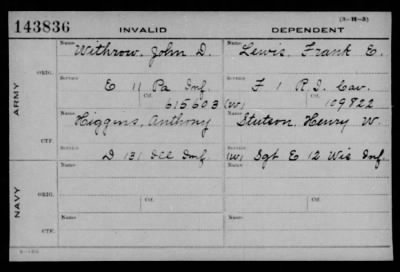 (3-H-3)
143836 INVALID DEPENDENT
Name Withrow, John D. Name Lewis, Frank E.
ARMY
ORIG.
Service E 11 Pa Inf. Service F 1 R.I. Cav.
Ctf. 615603 (W) Ctf. 109822
CTF.
Name Higgins, Anthony Name Stutson, Henry W.
D 131 Ill Inf. (W) Sgt E 12 Wis Inf.
NAVY
ORIG.
Name Name
Service Ctf. Service Ctf.
CTF.
Name Name